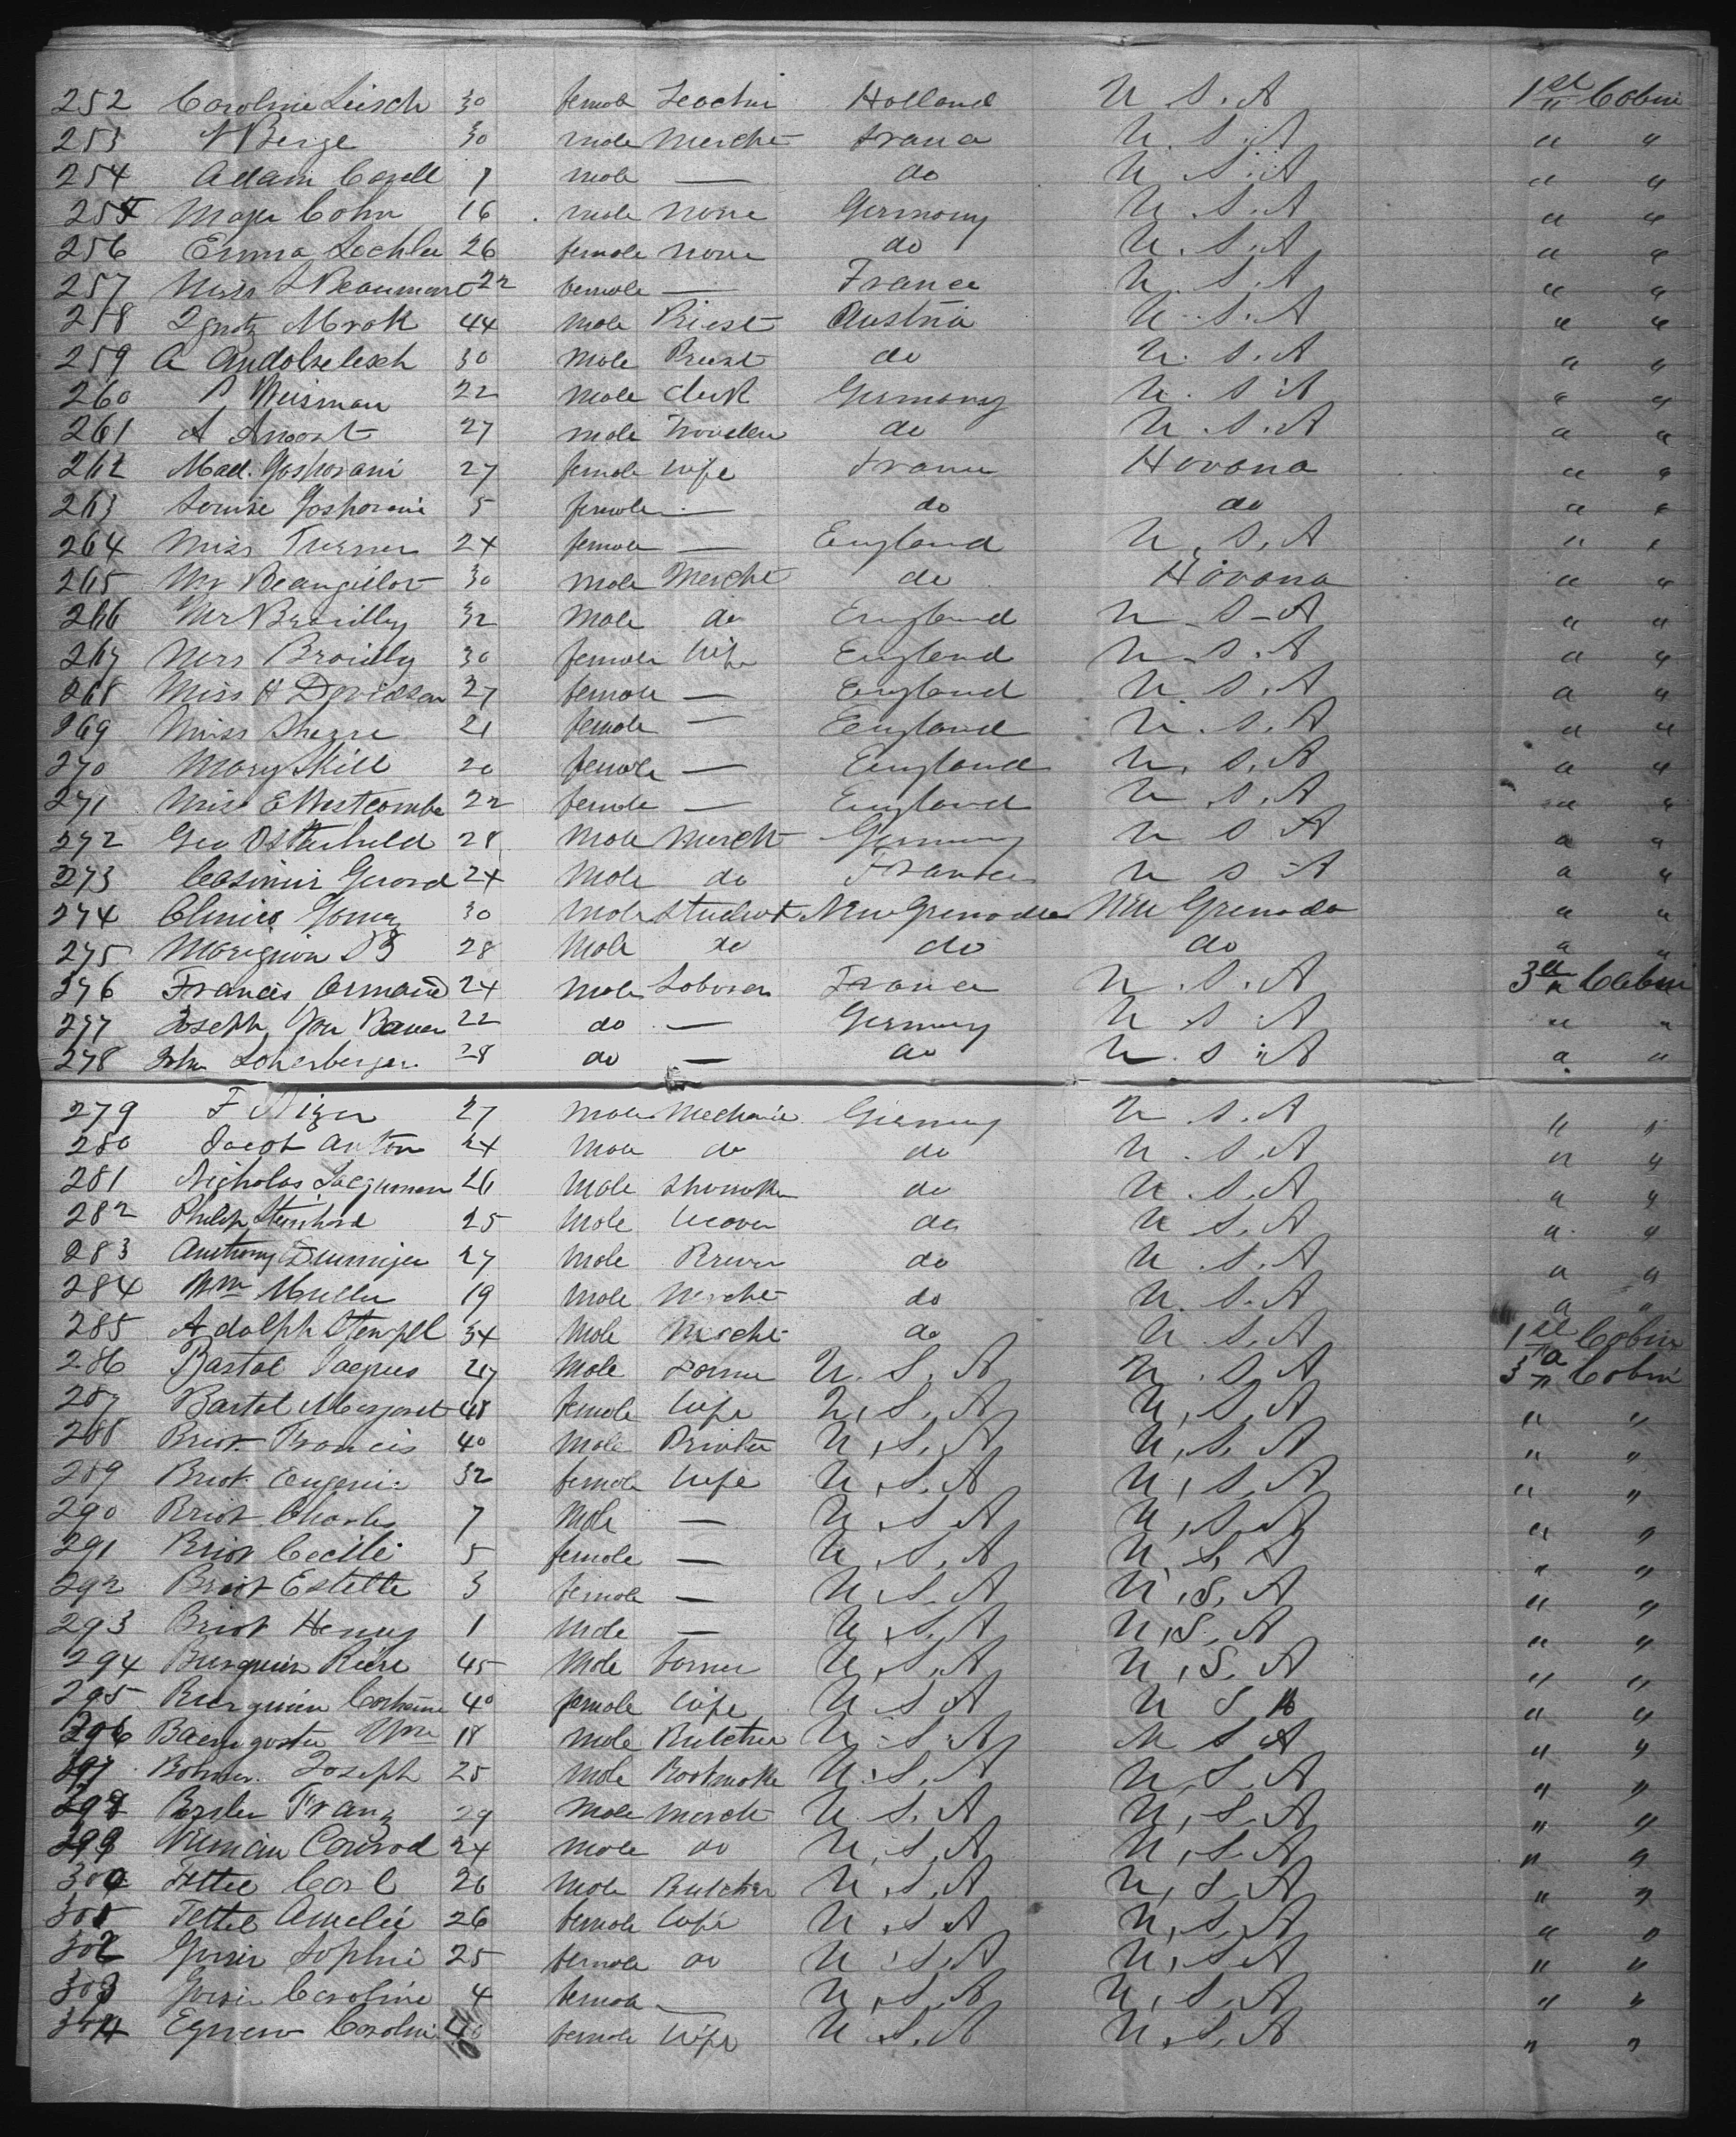 252 Caroline Leisch 30 female Teacher Holland U S. A 1st Cabin
253 N Berge 30 male Mercht France U. S. A " "
254 Adam Capell 7 male — do U S. A " "
255 Mayer Cohn 16 male none Germany U. S. A " "
256 Emma Lechler 26 female none do U. S. A " "
257 Miss S Beaumont 22 female — France U. S. A " "
258 Ignatz Mrak 44 male Priest Austria U. S. A " "
259 A 30 male Priest do U. S. A " "
260 Weisman 22 male Clerk Germany U. S. A " "
261 A 27 male Traveller do U. S. A " "
262 Mad. Gasparani 27 female wife France Havana " "
263 Louise Gasparani 5 female — do do " "
264 Miss Turner 24 female — England U. S. A " "
265 Mr 30 male Mercht do Havana " "
266 Mr 32 male do England U. S. A " "
267 Mrs Brailly 30 female wife England U. S. A " "
268 Miss H Davidson 27 female — England U. S. A " "
269 Miss 21 female — England U. S. A " "
270 Mary Hill 20 female — England U. S. A " "
271 Miss E Westcombe 22 female — England U. S. A " "
272 Geo Osterheld 28 male Mercht Germany U S A " "
273 Casimir Gerard 24 male do France U S A " "
274 Gomez 30 male Student New Grenada New Grenada " "
275 28 male do do do " "
276 Francis Armand 24 male Laborer France U. S. A 3d Cabin
277 Joseph Von Bauer 22 do — Germany U S A " "
278 John Loherberger 28 do — do U. S. A " "
279 F 27 male Mechanic Germany U S. A " "
280 Jacob Anton 24 male do do U. S. A " "
281 Nicholas Jacqueman 26 male Shomaker do U. S. A " "
282 Philip Steinhard 25 male Weaver do U S. A " "
283 Anthony 27 male Brewer do U. S. A " "
284 Wm Muller 19 male Mercht do U. S. A " "
285 Adolph Stempel 34 male Mercht do U. S. A 1st Cabin
286 Bastal Jacques 47 male Farmer U. S. A U. S. A 3d Cabin
287 Bastel Margaret 48 female wife U. S. A U. S. A " "
288 Briot Francis 40 male Printer U. S. A U. S. A " "
289 Briot Eugenie 32 female wife U. S. A U. S. A " "
290 Briot Charles 7 male — U. S. A U. S. A " "
291 Briot Cecille 5 female — U. S. A U. S. A " "
292 Briot Estelle 3 female — U. S. A U. S. A " "
293 Briot Henry 1 male — U. S. A U. S. A " "
294 Burquin Piere 45 male Farmer U. S. A U. S. A " "
295 Burquin Catharine 40 female wife U S A U S A " "
296 Baumgarter Wm 18 male Butcher U. S. A U S A " "
297 Joseph 25 male Bootmaker U. S. A U. S. A " "
298 Franz 29 male Mercht U. S. A U. S. A " "
299 Conrad 24 male do U. S. A U. S. A " "
300 Carl 26 male Butcher U. S. A U. S. A " "
301 Tettel Amelie 26 female wife U. S. A U. S. A " "
302 Sophie 25 female do U. S. A U. S. A " "
303 Caroline 4 female — U. S. A U. S. A " "
304 Caroline 40 female wife U. S. A U. S. A " "